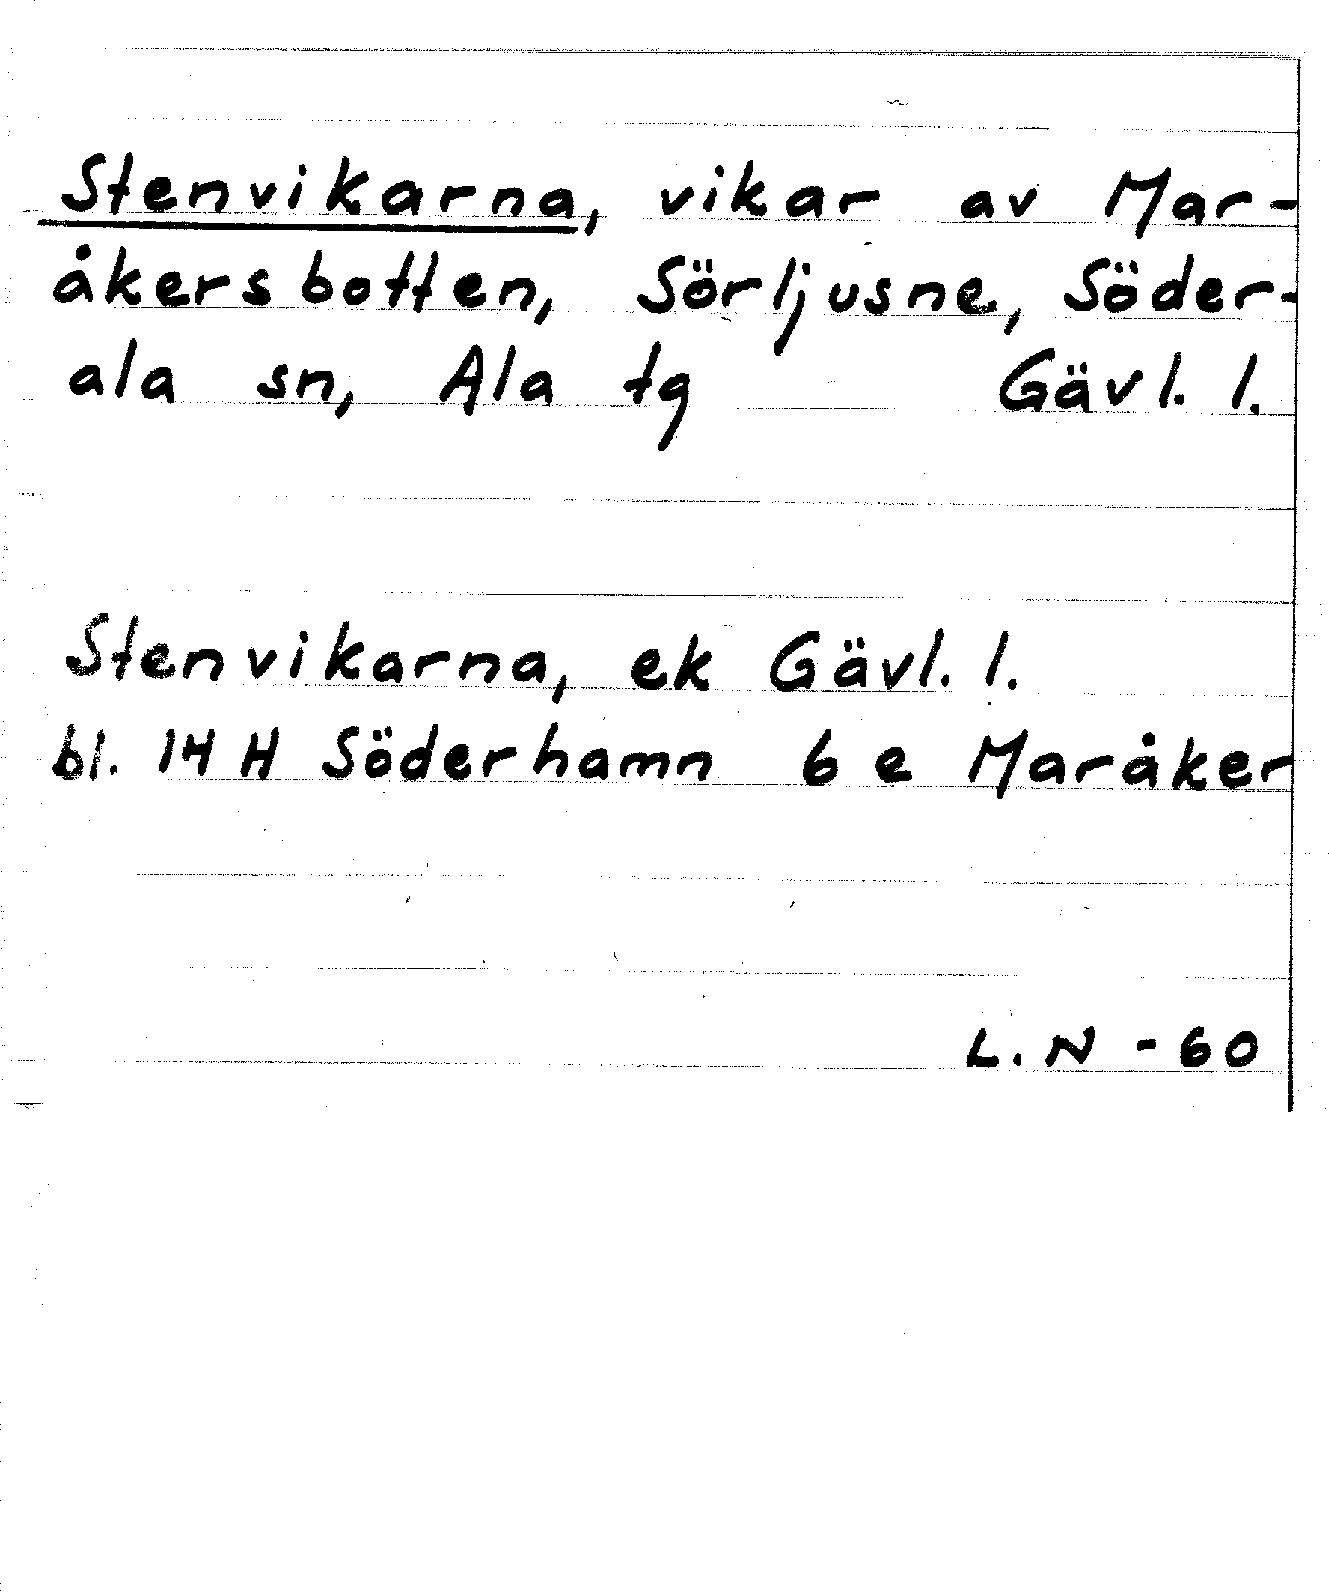 Stenvikarna, vikar av Mar-
åkersbotten, Sörljusne, Söder-
ala sn, Ala tg Gävl. l.
Stenvikarna, ek Gävl. l.
bl. 14 H Söderhamn 6 e Maråker
L. N - 60